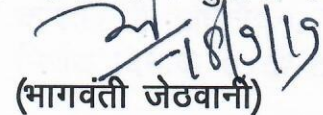 18/9/19
(भागवंती जेठवानी)